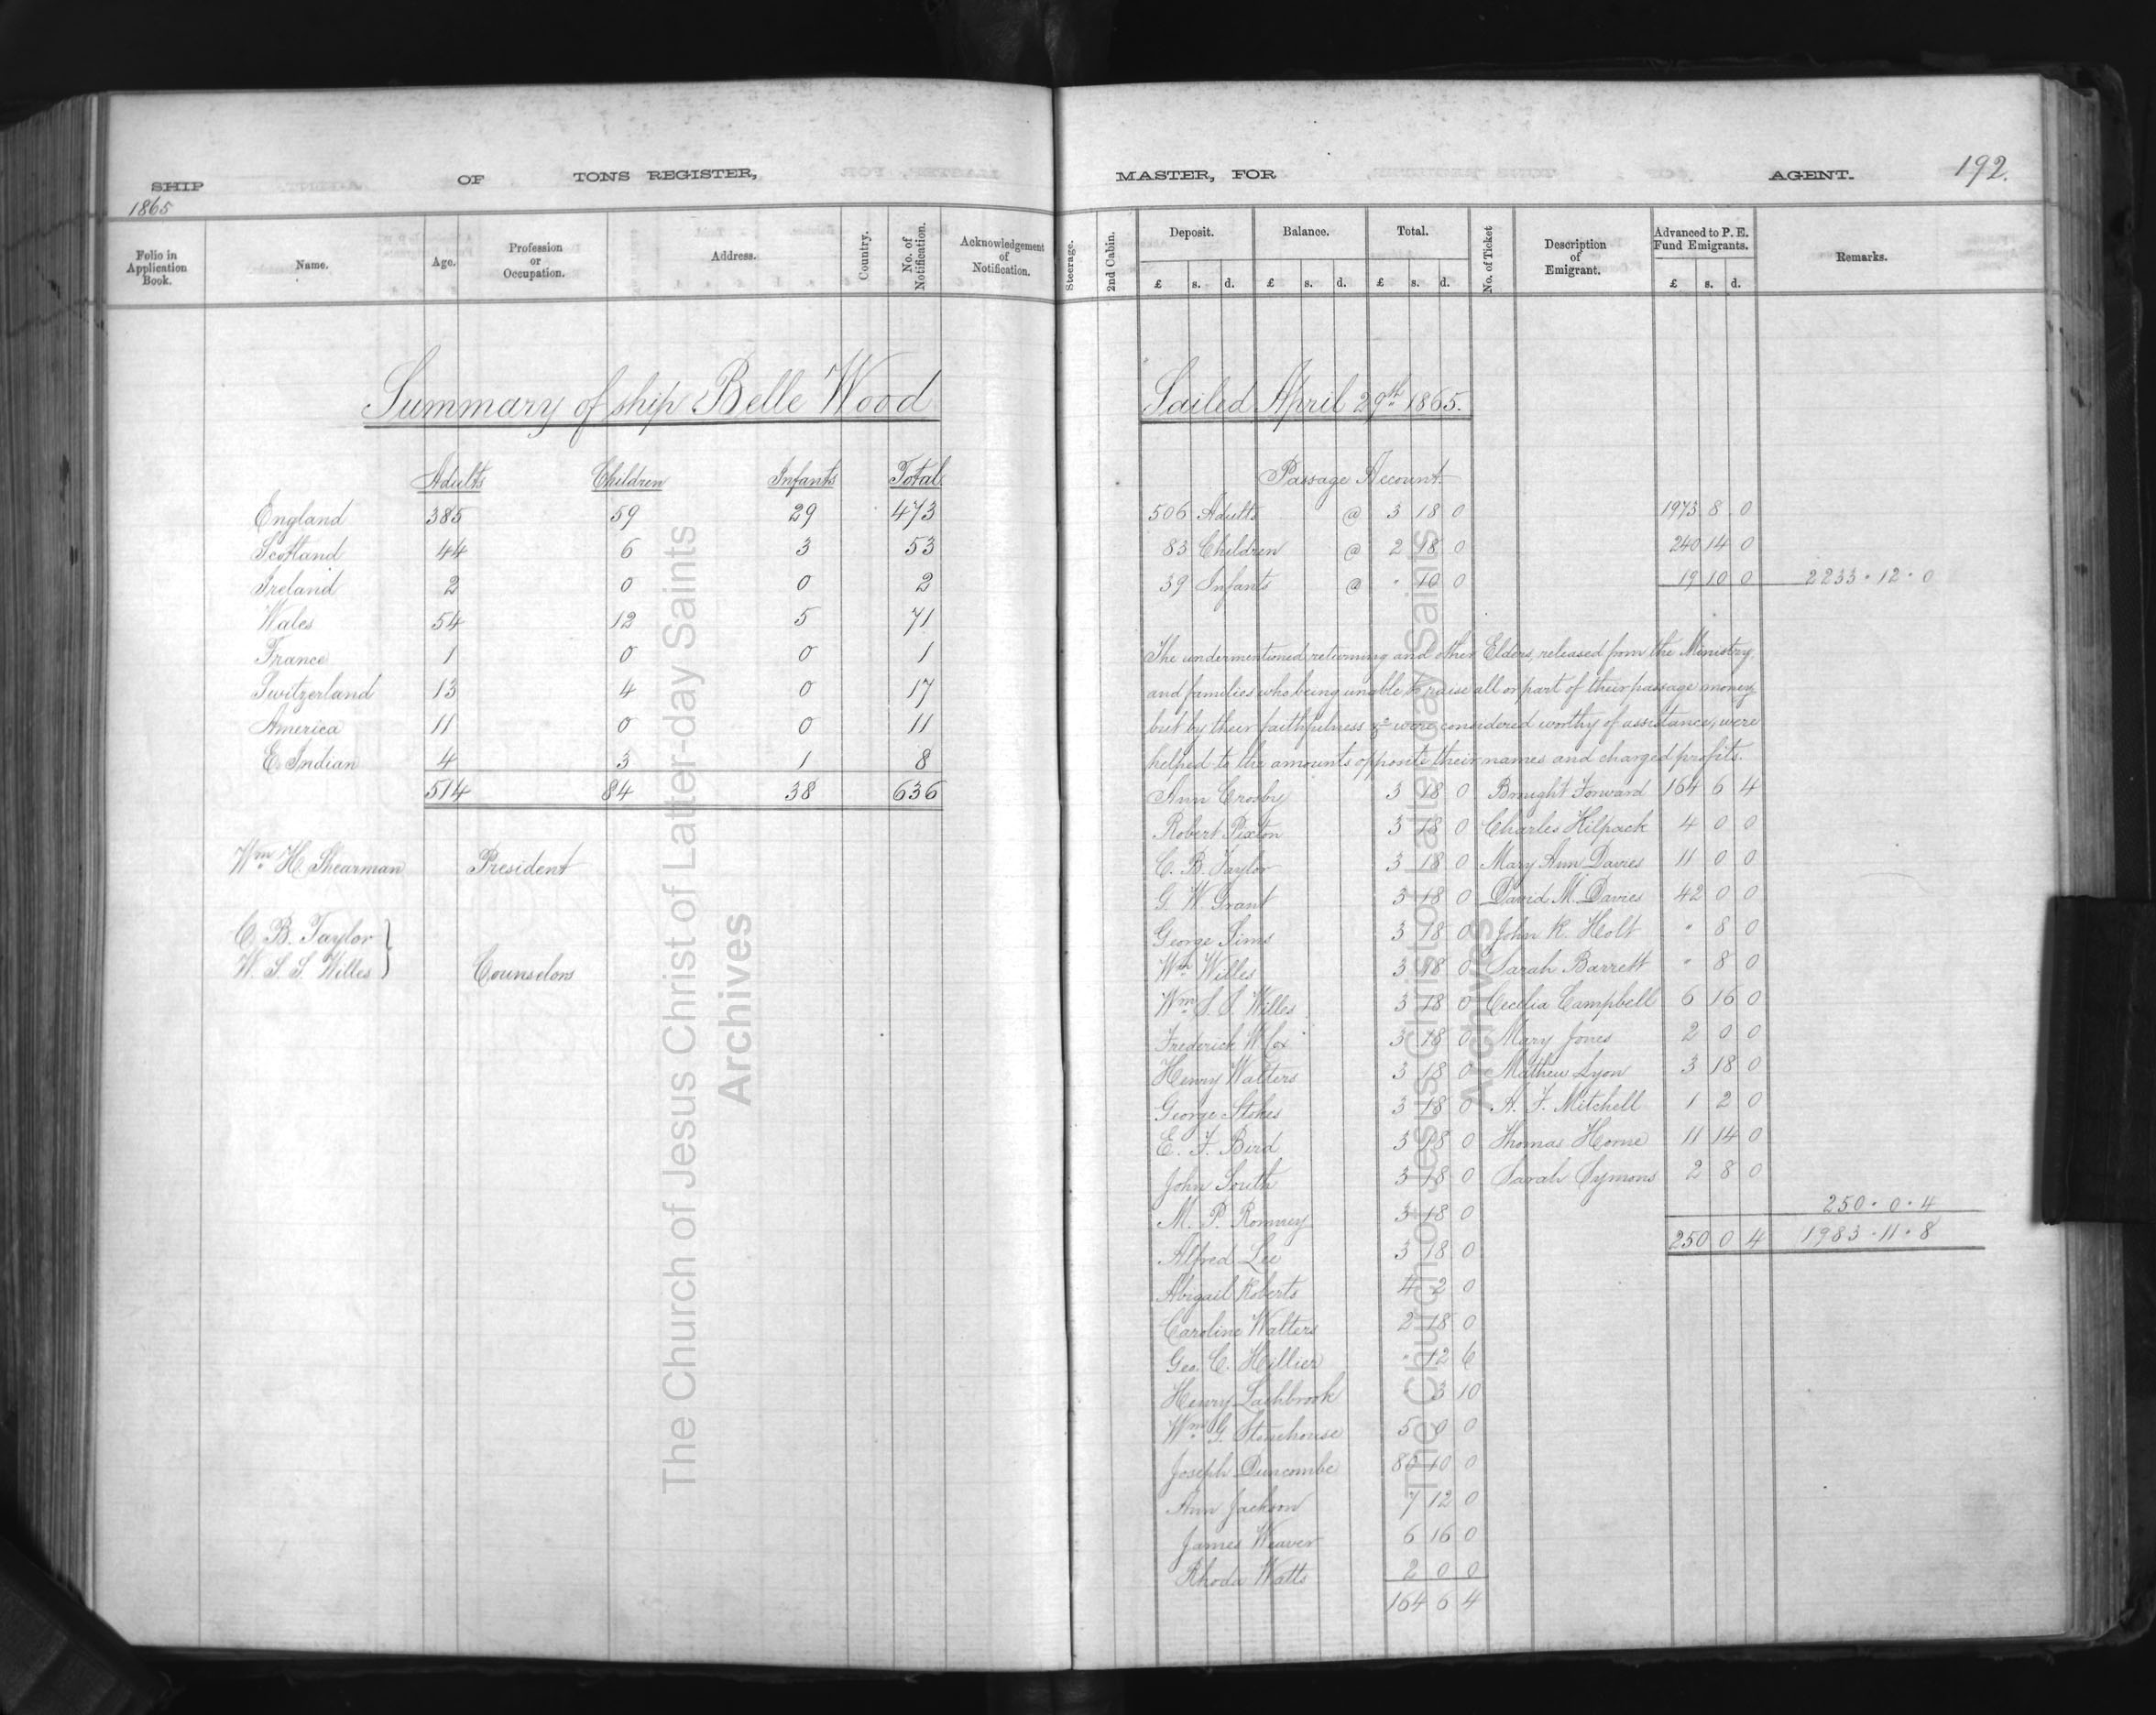 SHIP OF TONS REGISTER,
1865
Folio in Application Book. Name. Age. Profession or Occupation. Address. Country. No. of Notification. Acknowledgement of Notification.
Summary of ship Belle Wood
Adults Children Infants Total
England 385 59 29 473
Scotland 44 6 3 53
Ireland 2 0 0 2
Wales 54 12 5 71
France 1 0 0 1
Switzerland 13 4 0 17
America 11 0 0 11
E. Indian 4 3 1 8
514 84 38 636
Wm. H. Shearman President
C. B. Taylor }
W. S. S. Willes } Counselors
The Church of Jesus Christ of Latter-day Saints
Archives
MASTER, FOR AGENT. 192.
Steerage. 2nd Cabin. Deposit. Balance. Total. No. of Ticket Description of Emigrant. Advanced to P. E. Fund Emigrants. Remarks.
£ s. d. £ s. d. £ s. d. £ s. d.
Sailed April 29th 1865.
Passage Account
506 Adults @ 3 18 0 1973 8 0
83 Children @ 2 18 0 240 14 0
39 Infants @ " 10 0 19 10 0 2233 . 12 . 0
The undermentioned returning and other Elders, released from the Ministry,
and families who being unable to raise all or part of their passage money
but by their faithfulness &c were considered worthy of assistance, were
helped to the amounts opposite their names and charged profits.
Ann Crosby 3 18 0 Brought Forward 164 6 4
Robert Pixton 3 18 0 Charles Hilpack 4 0 0
C. B. Taylor 3 18 0 Mary Ann Davies 11 0 0
G. W. Grant 3 18 0 David M. Davies 42 0 0
George Sims 3 18 0 John R. Holt " 8 0
Wm Willes 3 18 0 Sarah Barrett " 8 0
Wm. S. S. Willes 3 18 0 Cecelia Campbell 6 16 0
Frederick W. Cox 3 18 0 Mary Jones 2 0 0
Henry Walters 3 18 0 Mathew Lyon 3 18 0
George Stokes 3 18 0 A. F. Mitchell 1 2 0
E. F. Bird 3 18 0 Thomas Horne 11 14 0
John South 3 18 0 Sarah Symons 2 8 0
M. P. Romney 3 18 0 250 . 0 . 4
Alfred Lee 3 18 0 250 0 4 1983 . 11 . 8
Abigail Roberts 4 2 0
Caroline Walters 2 18 0
Geo. C. Hillier " 12 6
Henry Lashbrook " 3 10
Wm. G. Stenehouse 5 0 0
Joseph Duncombe 80 10 0
Ann Jackson 7 12 0
James Weaver 6 16 0
Rhoda Watts 2 0 0
164 6 4
The Church of Jesus Christ of Latter-day Saints
Archives